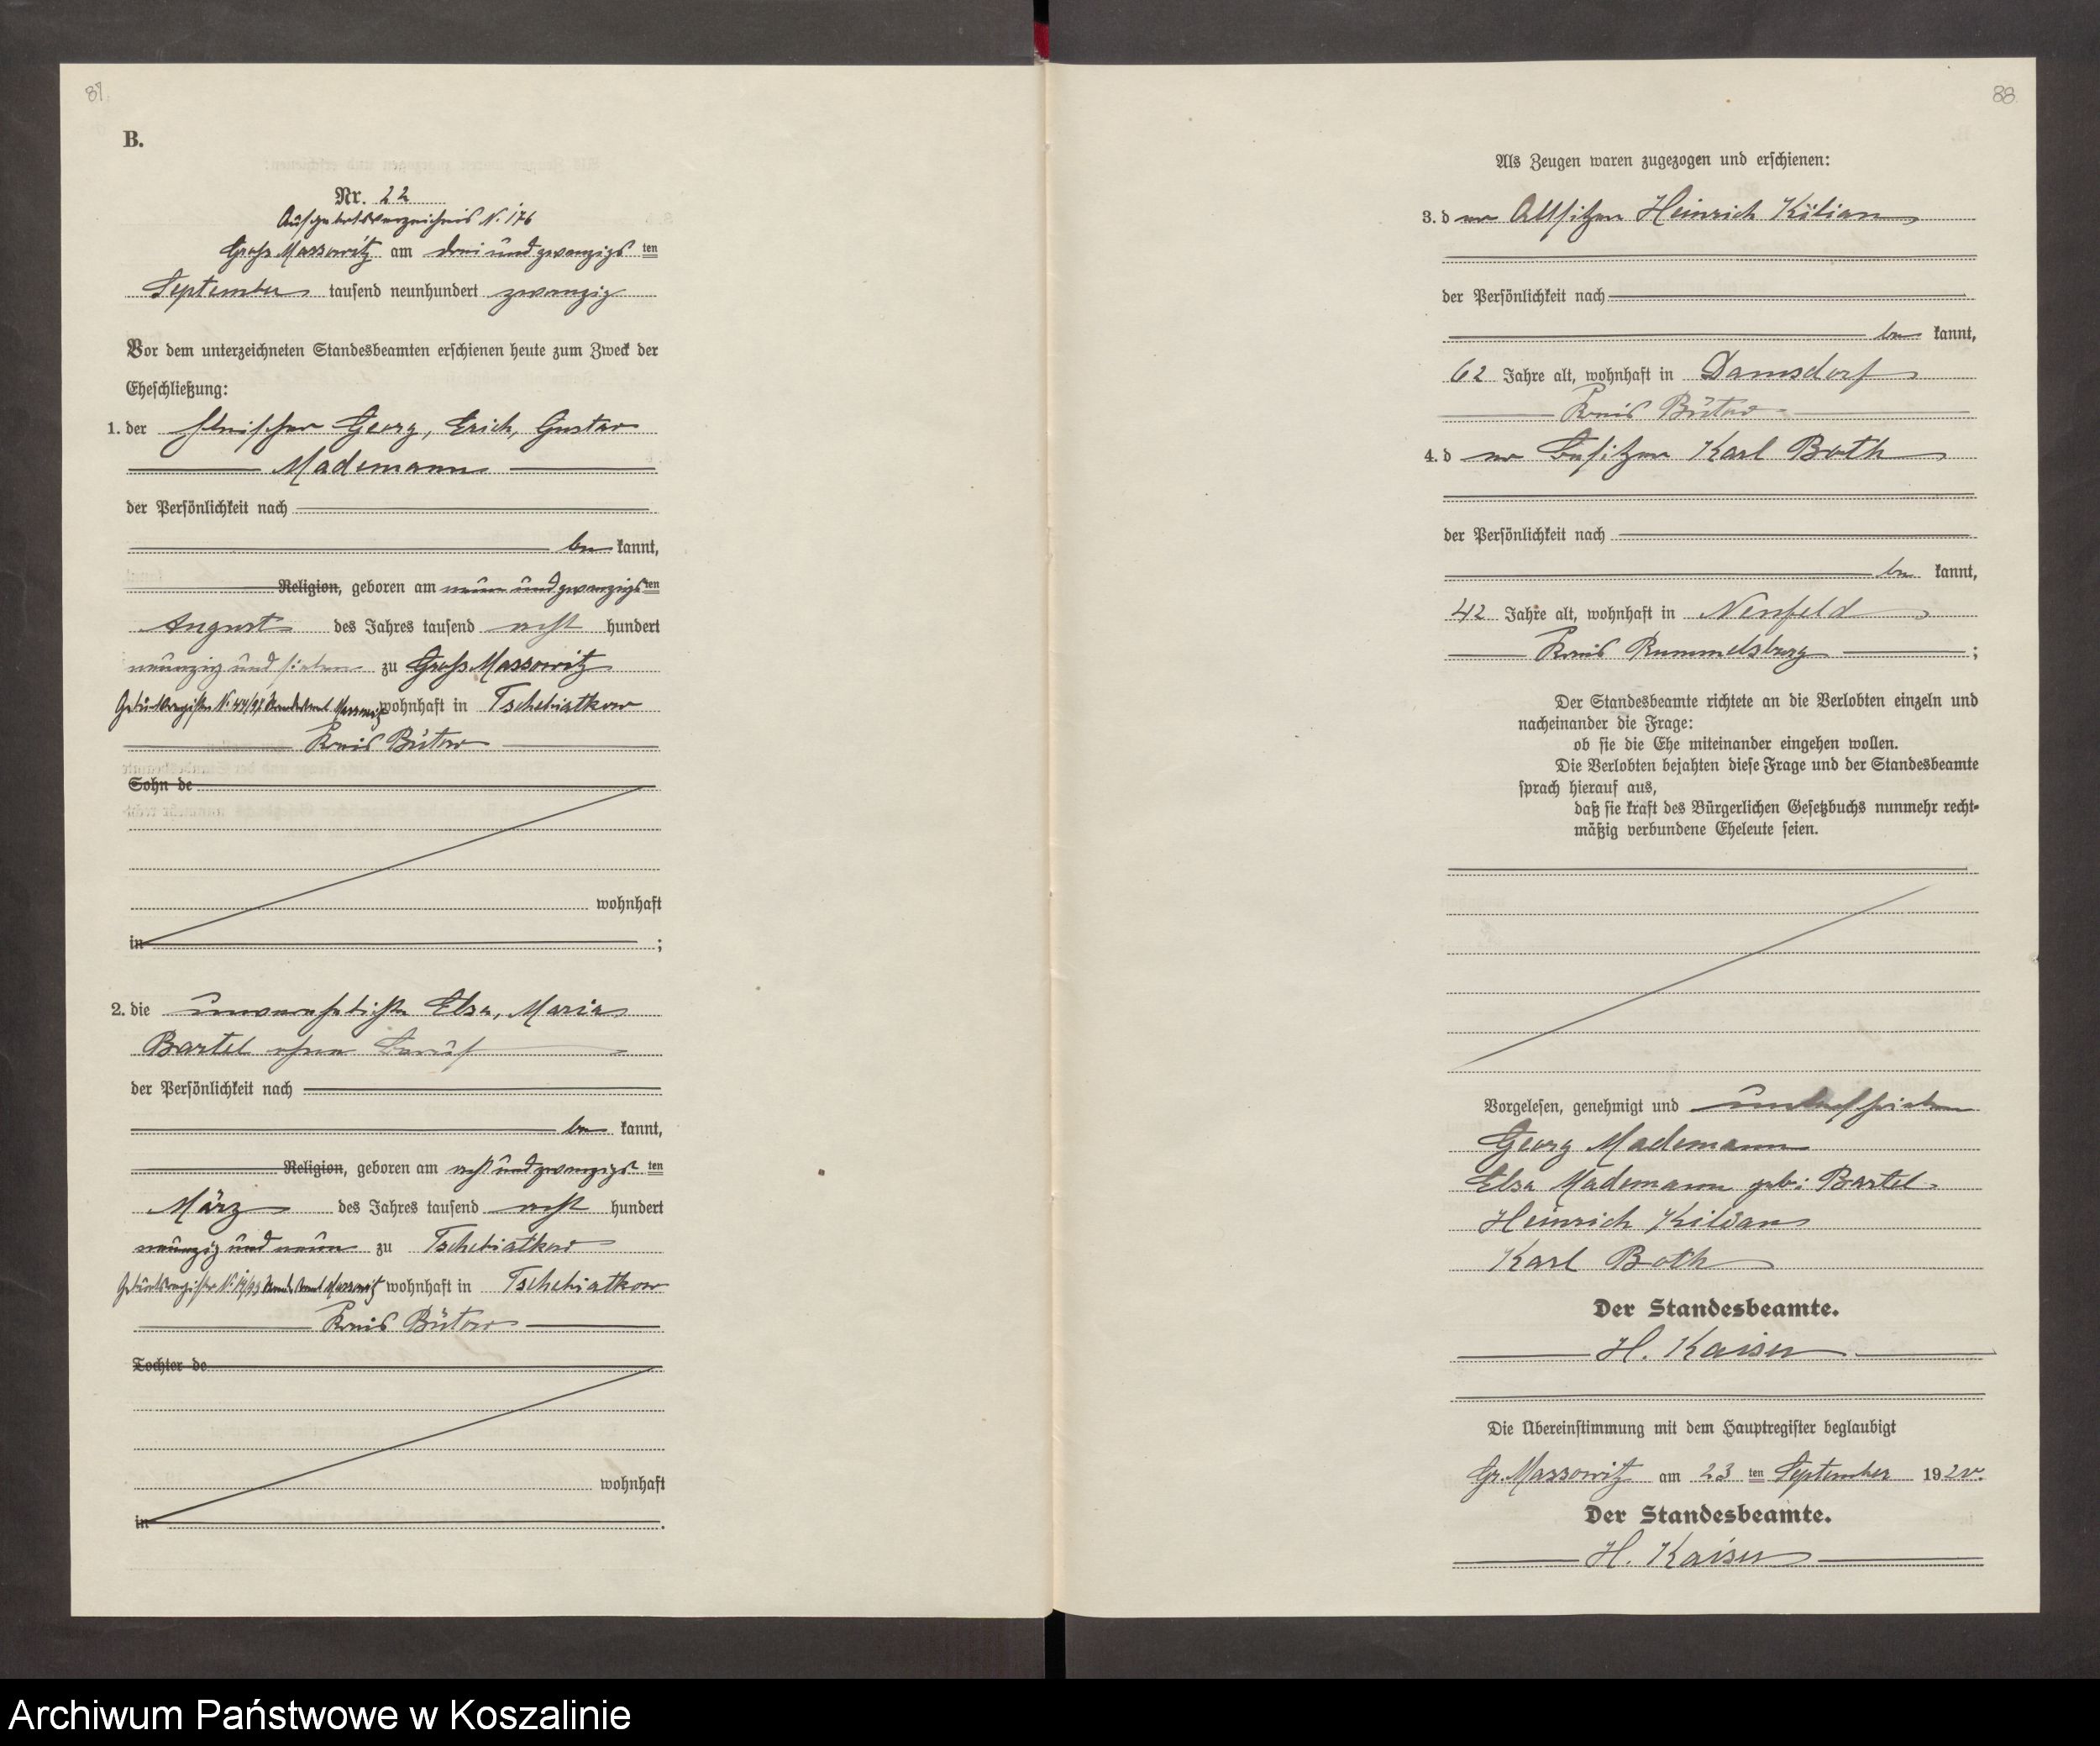 87.
B.
Nr. 22
Aufgebotsverzeichnis N. 176
Groß Massowitz am drei und zwanzigsten
September tausend neunhundert zwanzig
Vor dem unterzeichneten Standesbeamten erschienen heute zum Zweck der
Eheschließung:
1. der Fleischer Georg, Erich, Gustav
Mademann
der Persönlichkeit nach
be kannt,
Religion, geboren am neun und zwanzigsten
August des Jahres tausend acht hundert
neunzig und sieben zu Groß Massowitz
Geburtsregister N. 44/97 Standesamt Massowitz wohnhaft in Tschebiatkow
Kreis Bütow
Sohn de
wohnhaft
in ;
2. die unverehelichte Elsa, Maria
Bartel ohne Beruf
der Persönlichkeit nach
be kannt,
Religion, geboren am acht und zwanzigsten
März des Jahres tausend acht hundert
neunzig und neun zu Tschebiatkow
Geburtsregister N. 19/99 Standesamt Massowitz wohnhaft in Tschebiatkow
Kreis Bütow
Tochter de
wohnhaft
in .
88.
Als Zeugen waren zugezogen und erschienen:
3. d er Altsitzer Heinrich Kilian
der Persönlichkeit nach
be kannt,
62 Jahre alt, wohnhaft in Damsdorf
Kreis Bütow
4. d er Besitzer Karl Both
der Persönlichkeit nach
be kannt,
42 Jahre alt, wohnhaft in Neufeld
Kreis Rummelsburg ;
Der Standesbeamte richtete an die Verlobten einzeln und
nacheinander die Frage:
ob sie die Ehe miteinander eingehen wollen.
Die Verlobten bejahten diese Frage und der Standesbeamte
sprach hierauf aus,
daß sie kraft des Bürgerlichen Gesetzbuchs nunmehr recht-
mäßig verbundene Eheleute seien.
Vorgelesen, genehmigt und unterschrieben
Georg Mademann
Elsa Mademann geb: Bartel
Heinrich Kilian
Karl Both
Der Standesbeamte.
H. Kaiser
Die Übereinstimmung mit dem Hauptregister beglaubigt
Gr. Massowitz am 23 ten September 1920.
Der Standesbeamte.
H. Kaiser
Archiwum Państwowe w Koszalinie